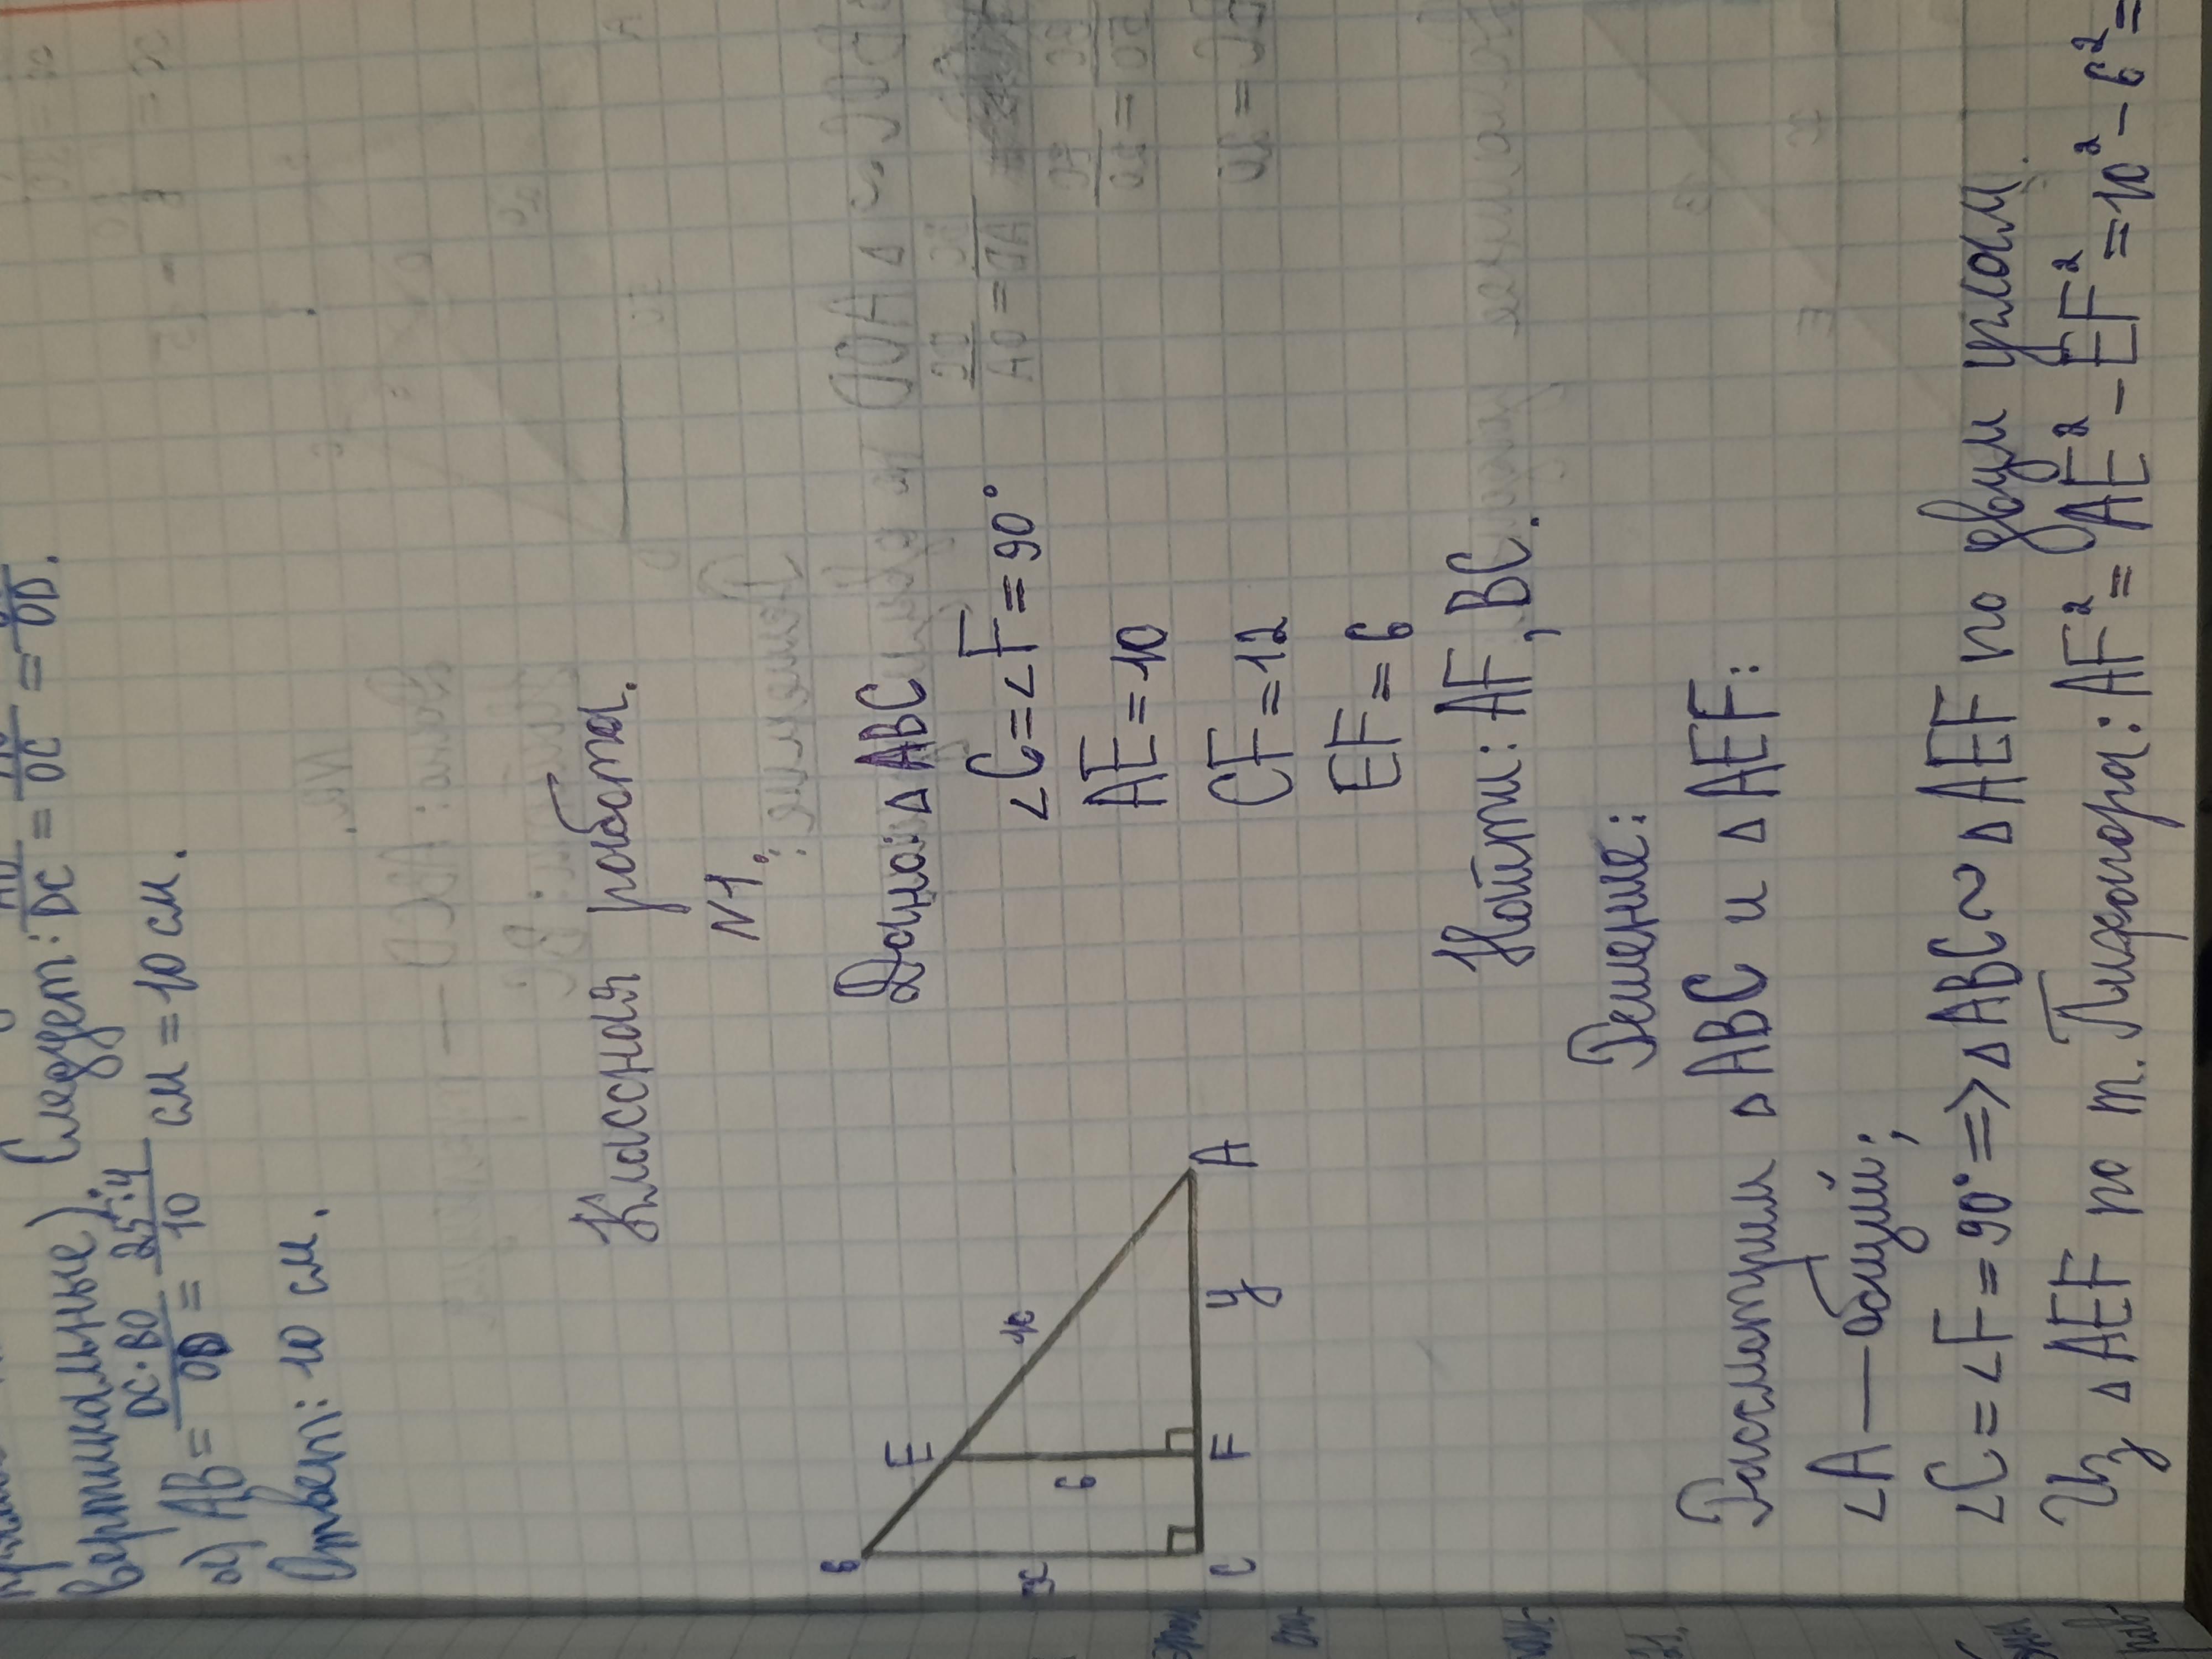 вертикальные) Следует: AB/DC = AO/OC = BO/OD.
а) AB = DC·BO/OD = 25·4/10 см = 10 см.
Ответ: 10 см.
Классная работа.
№1.
Дано: △ABC
∠C=∠F=90°
AE=10
CF=12
EF=6
Найти: AF, BC.
B
E
10
x
6
C
F
y
A
Решение:
Рассмотрим △ABC и △AEF:
∠A — общий;
∠C=∠F=90° => △ABC ~ △AEF по двум углам.
Из △AEF по т. Пифагора: AF²=AE²-EF²=10²-6²=